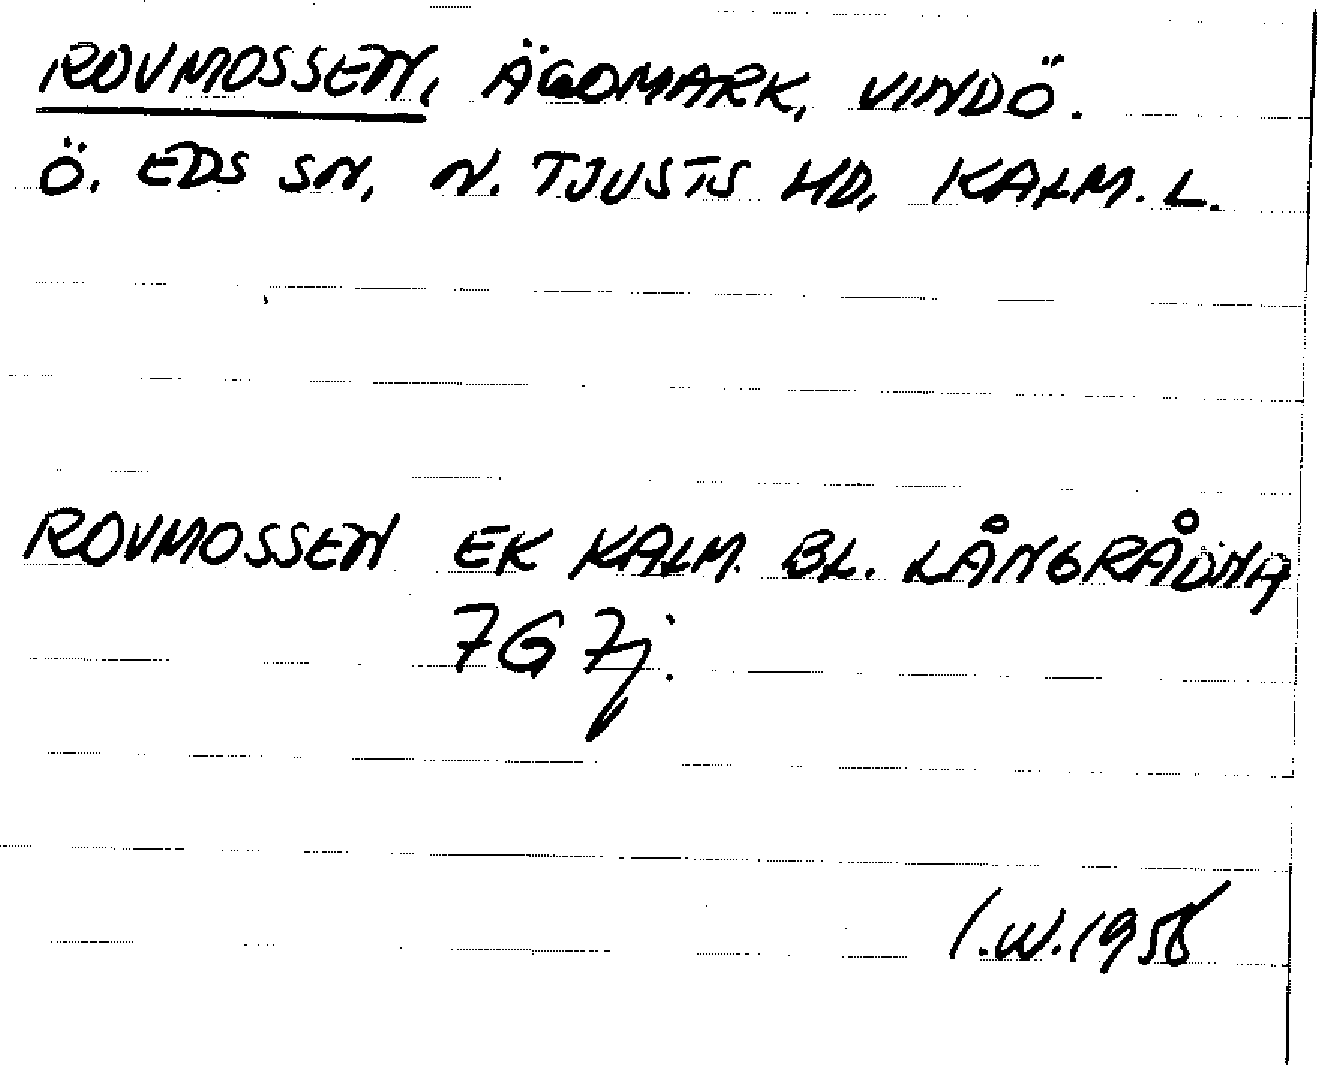 ROVMOSSEN, ÄGOMARK, VINDÖ.
Ö. EDS SN, N. TJUSTS HD, KALM. L.
ROVMOSSEN EK KALM. BL. LÅNGRÅDNA
7G 7j.
I.W. 1958